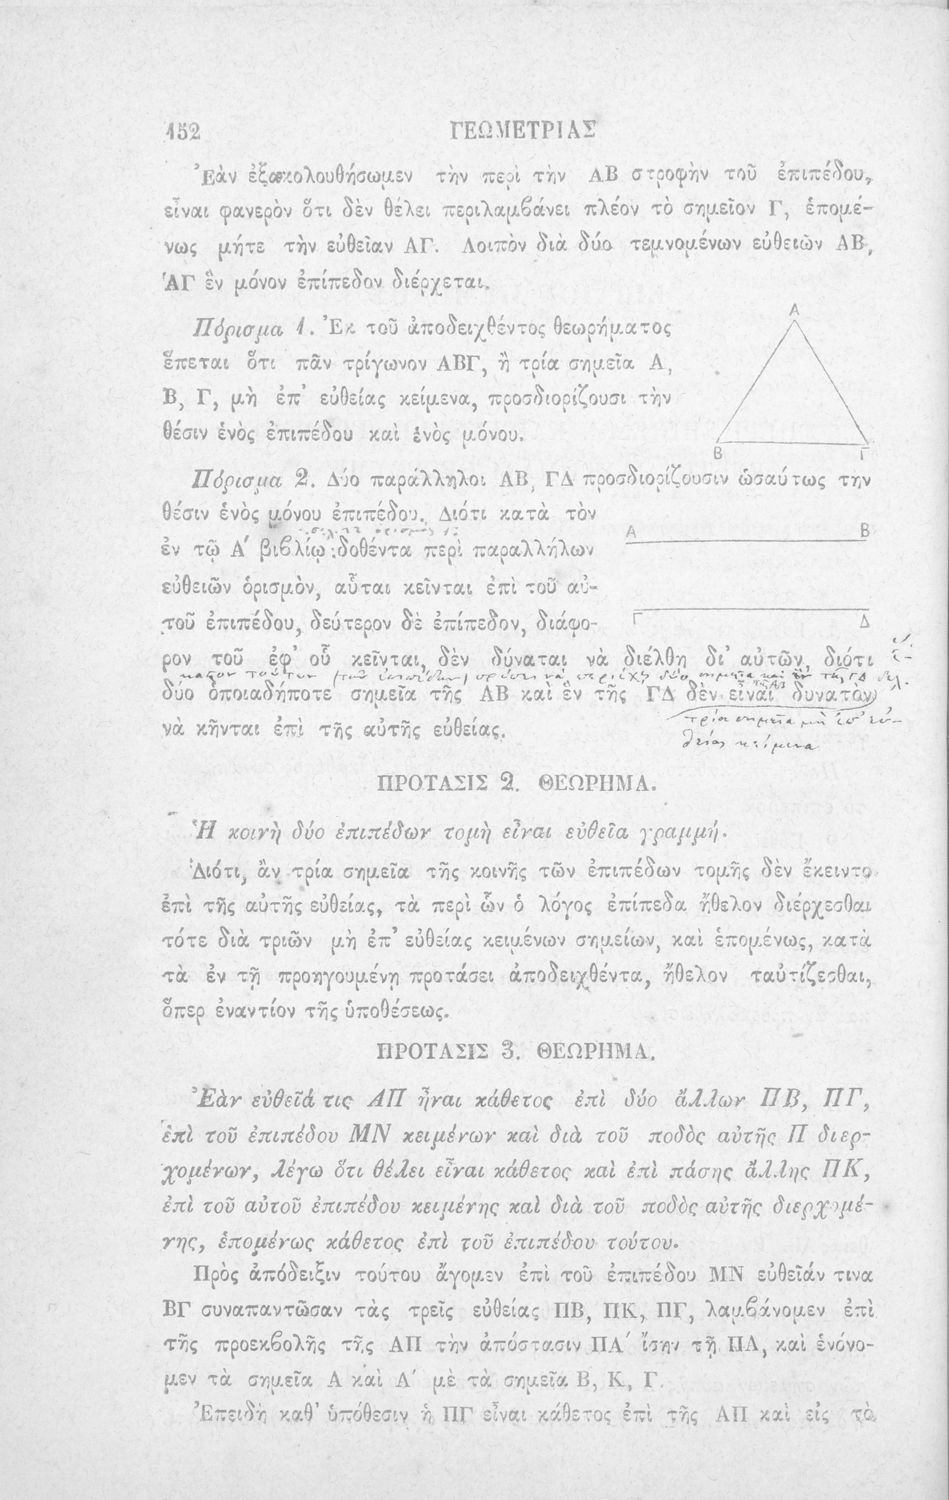 152 ΓΕΩΜΕΤΡΙΑΣ
Ἐὰν ἐξακολουθήσωμεν τὴν περὶ τὴν ΑΒ στροφὴν τοῦ ἐπιπέδου,
εἶναι φανερὸν ὅτι δὲν θέλει περιλαμβάνει πλέον τὸ σημεῖον Γ, ἑπομέ-
νως μήτε τὴν εὐθεῖαν ΑΓ. Λοιπὸν διὰ δύο τεμνομένων εὐθειῶν ΑΒ,
ΑΓ ἓν μόνον ἐπίπεδον διέρχεται.
Πόρισμα 1. Ἐκ τοῦ ἀποδειχθέντος θεωρήματος
ἕπεται ὅτι πᾶν τρίγωνον ΑΒΓ, ἢ τρία σημεῖα Α,
Β, Γ, μὴ ἐπ' εὐθείας κείμενα, προσδιορίζουσι τὴν
θέσιν ἑνὸς ἐπιπέδου καὶ ἑνὸς μόνου.
Α
Β Γ
Πόρισμα 2. Δύο παράλληλοι ΑΒ, ΓΔ προσδιορίζουσιν ὡσαύτως την
θέσιν ἑνὸς μόνου ἐπιπέδου. Διότι κατὰ τὸν
ἐν τῷ Α' βιβλίῳ δοθέντα περὶ παραλλήλων
εὐθειῶν ὁρισμὸν, αὗται κεῖνται ἐπὶ τοῦ αὐ-
τοῦ ἐπιπέδου, δεύτερον δὲ ἐπίπεδον, διάφο-
Α Β
Γ Δ
ρον τοῦ ἐφ' οὗ κεῖνται, δὲν δύναται νὰ διέλθῃ δι' αὐτῶν, διότι
δύο ὁποιαδήποτε σημεῖα τῆς ΑΒ καὶ ἓν τῆς ΓΔ δὲν εἶναι δυνατὸν
νὰ κῆνται ἐπὶ τῆς αὐτῆς εὐθείας.
τρία σημεῖα μὴ ἐπ' εὐ-
θείας κείμενα
ΠΡΟΤΑΣΙΣ 2. ΘΕΩΡΗΜΑ.
Ἡ κοινὴ δύο ἐπιπέδων τομὴ εἶναι εὐθεῖα γραμμή.
Διότι, ἂν τρία σημεῖα τῆς κοινῆς τῶν ἐπιπέδων τομῆς δὲν ἔκειντο
ἐπὶ τῆς αὐτῆς εὐθείας, τὰ περὶ ὧν ὁ λόγος ἐπίπεδα ἤθελον διέρχεσθαι
τότε διὰ τριῶν μὴ ἐπ' εὐθείας κειμένων σημείων, καὶ ἑπομένως, κατὰ
τὰ ἐν τῇ προηγουμένῃ προτάσει ἀποδειχθέντα, ἤθελον ταὐτίζεσθαι,
ὅπερ ἐναντίον τῆς ὑποθέσεως.
ΠΡΟΤΑΣΙΣ 3. ΘΕΩΡΗΜΑ.
Ἐὰν εὐθεῖά τις ΑΠ ἦναι κάθετος ἐπὶ δύο ἄλλων ΠΒ, ΠΓ,
ἐπὶ τοῦ ἐπιπέδου ΜΝ κειμένων καὶ διὰ τοῦ ποδὸς αὐτῆς Π διερ-
χομένων, λέγω ὅτι θέλει εἶναι κάθετος καὶ ἐπὶ πάσης ἄλλης ΠΚ,
ἐπὶ τοῦ αὐτοῦ ἐπιπέδου κειμένης καὶ διὰ τοῦ ποδὸς αὐτῆς διερχομέ-
νης, ἑπομένως κάθετος ἐπὶ τοῦ ἐπιπέδου τούτου.
Πρὸς ἀπόδειξιν τούτου ἄγομεν ἐπὶ τοῦ ἐπιπέδου ΜΝ εὐθεῖάν τινα
ΒΓ συναπαντῶσαν τὰς τρεῖς εὐθείας ΠΒ, ΠΚ, ΠΓ, λαμβάνομεν ἐπὶ
τῆς προεκβολῆς τῆς ΑΠ τὴν ἀπόστασιν ΠΑ' ἴσην τῇ ΠΑ, καὶ ἑνόνο-
μεν τὰ σημεῖα Α καὶ Α' μὲ τὰ σημεῖα Β, Κ, Γ.
Ἐπειδὴ καθ' ὑπόθεσιν ἡ ΠΓ εἶναι κάθετος ἐπὶ τῆς ΑΠ καὶ εἰς τὸ